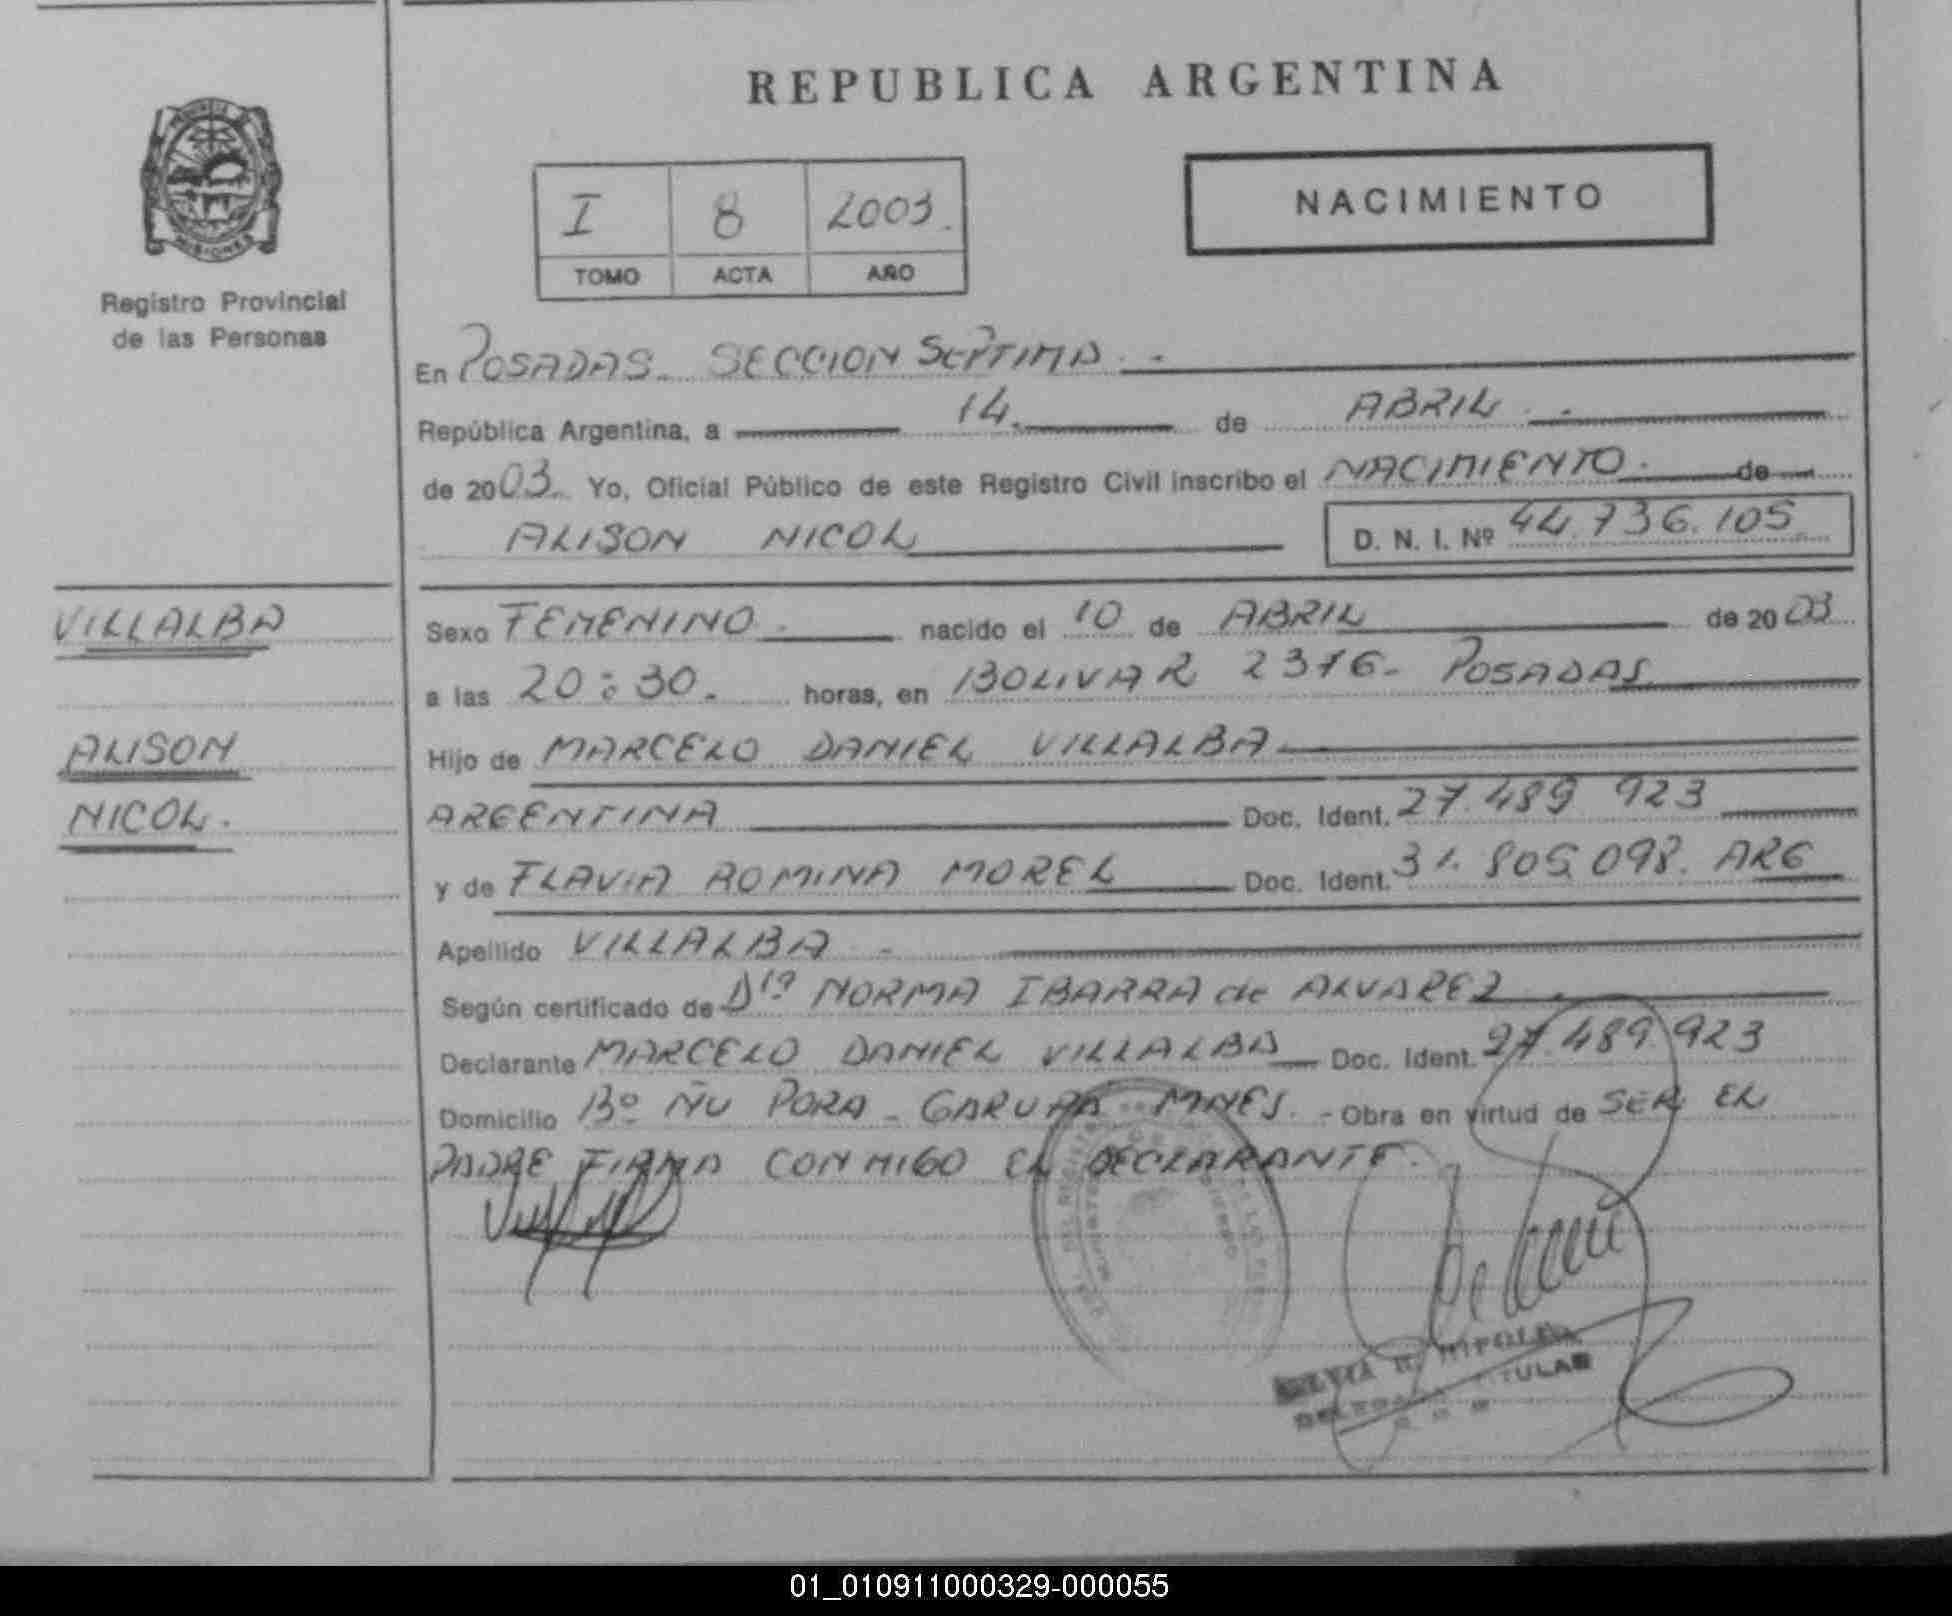 REPUBLICA ARGENTINA
MISIONES
Registro Provincial
de las Personas
I 8 2003.
TOMO ACTA AÑO
NACIMIENTO
En POSADAS. SECCION SEPTIMA.-
República Argentina, a 14. de ABRIL.-
de 2003. Yo, Oficial Público de este Registro Civil inscribo el NACIMIENTO. de
ALISON NICOL D. N. I. Nº 44.736.105
VILLALBA
ALISON
NICOL.
Sexo FEMENINO. nacido el 10 de ABRIL de 2003
a las 20:30. horas, en BOLIVAR 2376- POSADAS
Hijo de MARCELO DANIEL VILLALBA
ARGENTINA Doc. Ident. 27.489.923
y de FLAVIA ROMINA MOREL Doc. Ident. 31.805.098. ARG
Apellido VILLALBA.-
Según certificado de NORMA IBARRA de ALVAREZ
Declarante MARCELO DANIEL VILLALBA Doc. Ident. 27.489.923
Domicilio Bº ÑU PORA - GARUPA MNES.- Obra en virtud de SER EL
PADRE FIRMA CONMIGO EL DECLARANTE.
TITULAR
01_010911000329-000055